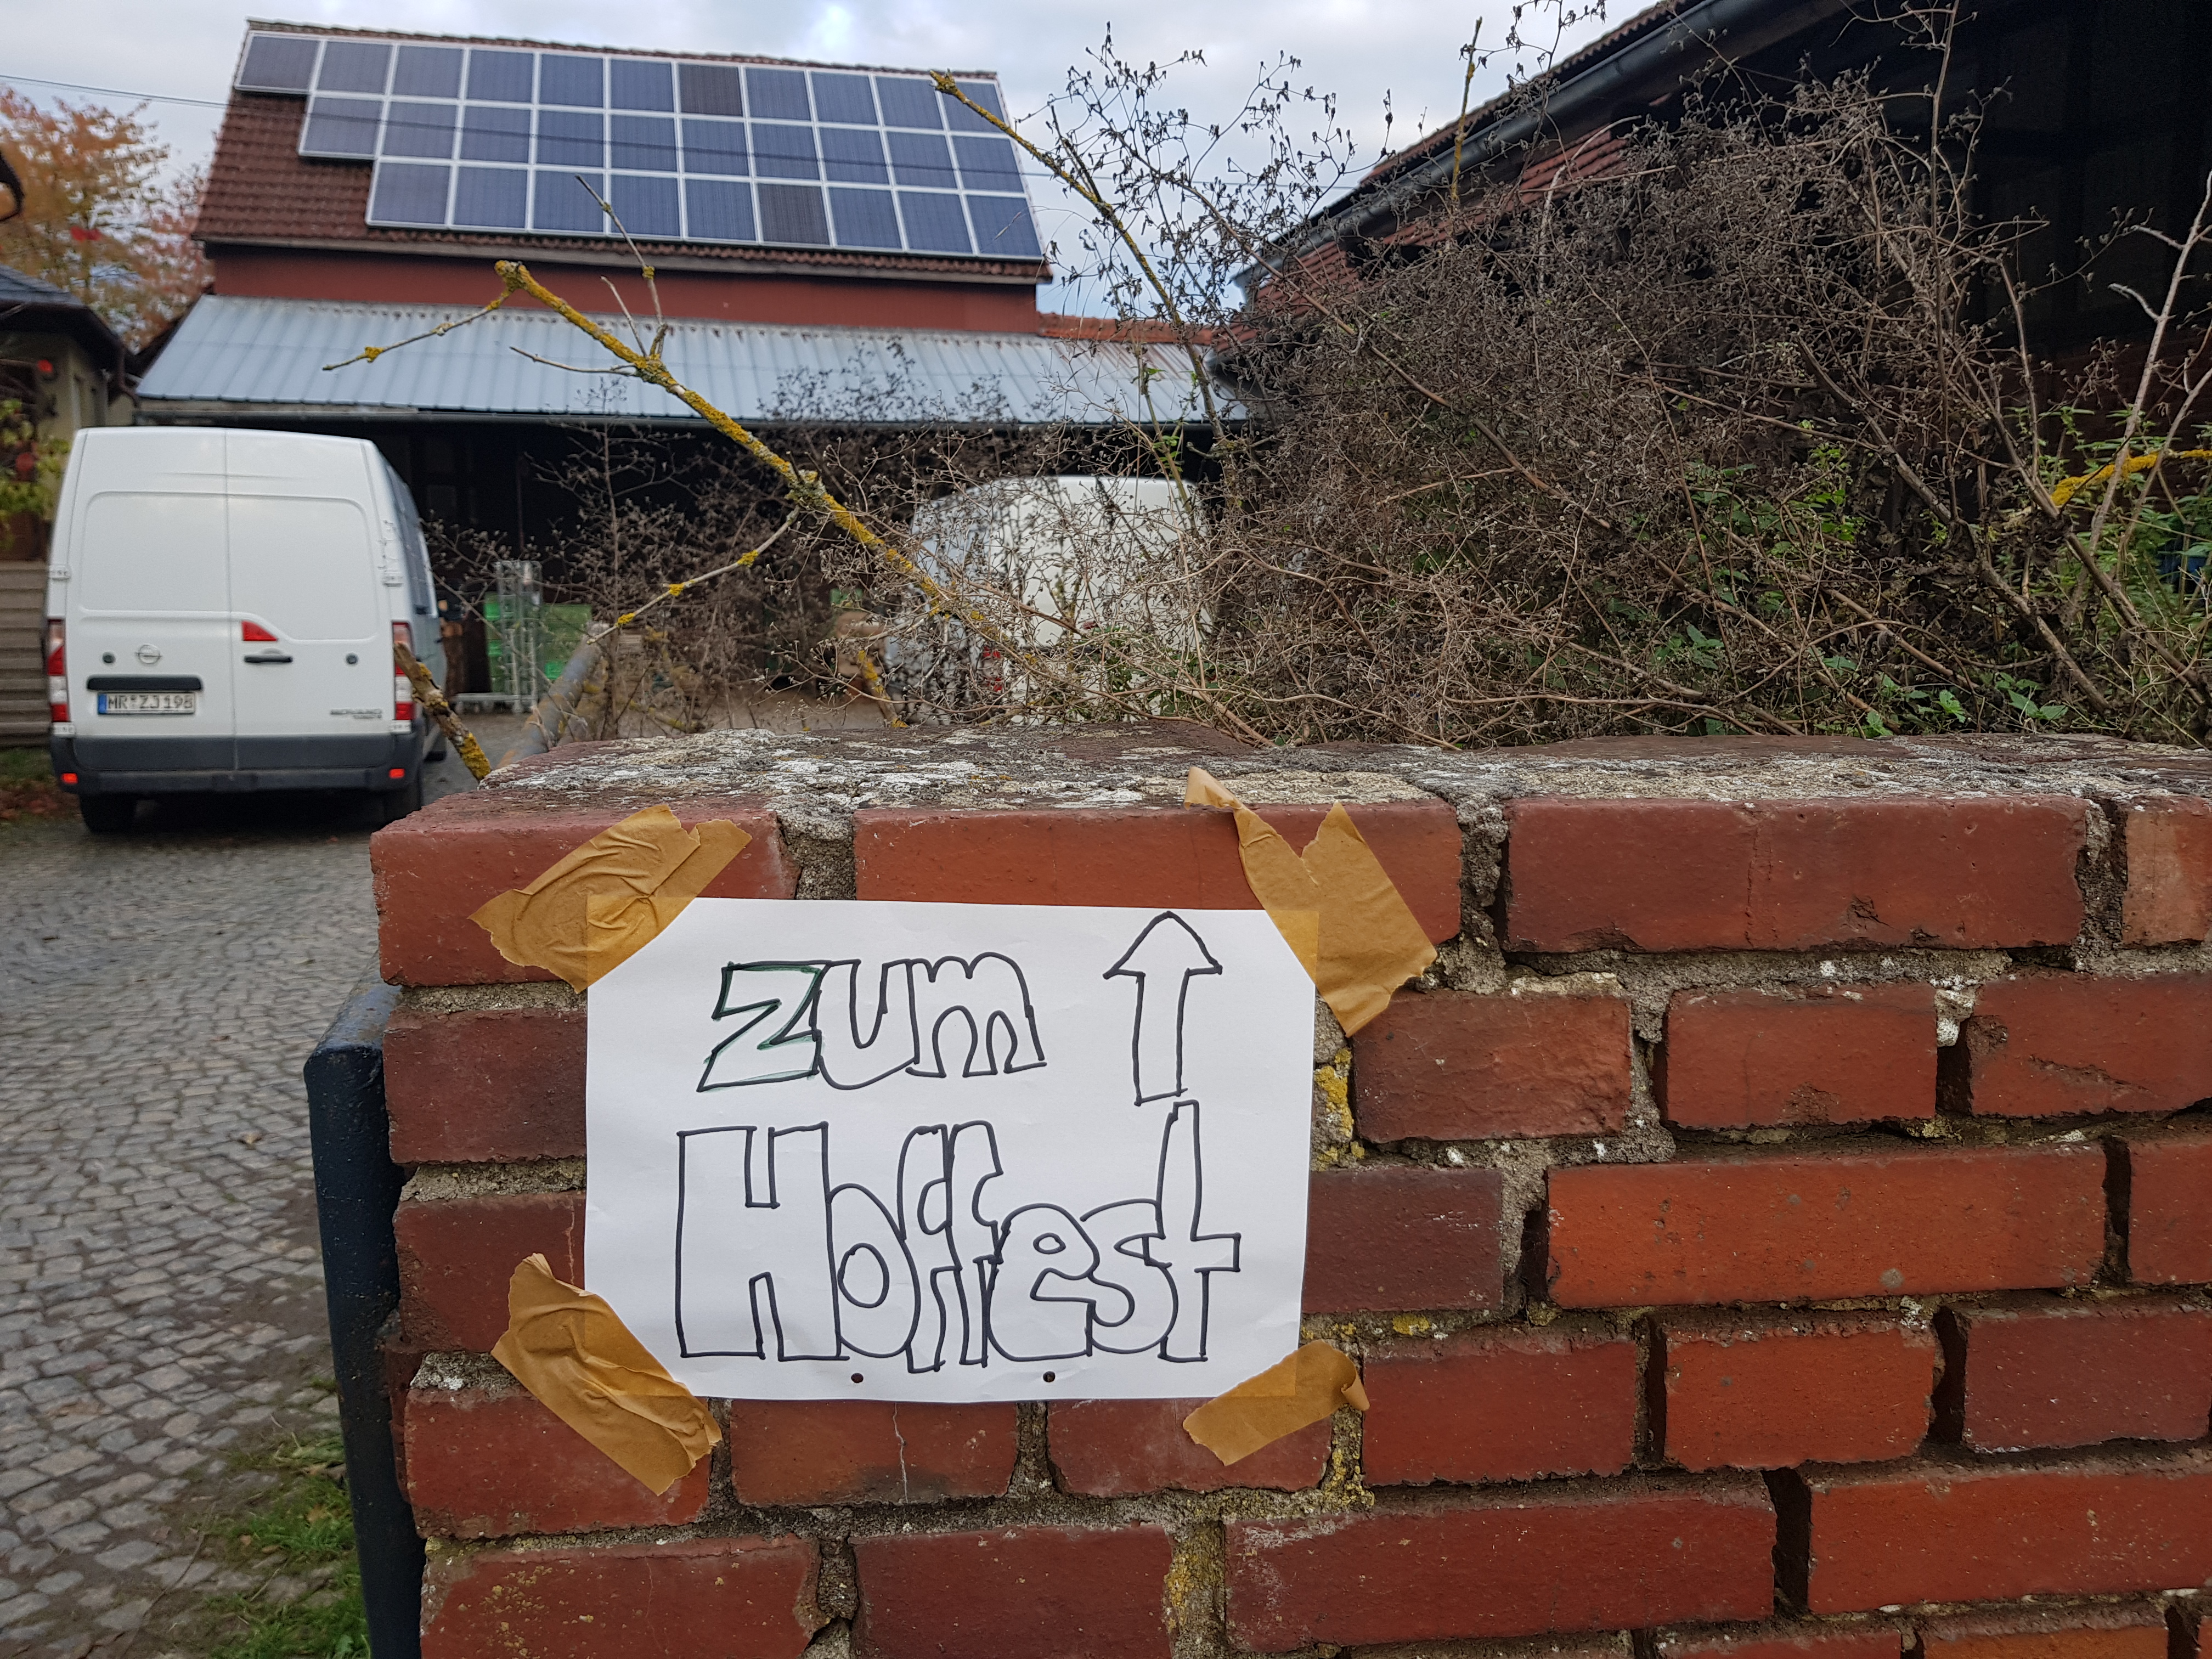 MR ZJ 198
MOVANO
zum
Hoffest